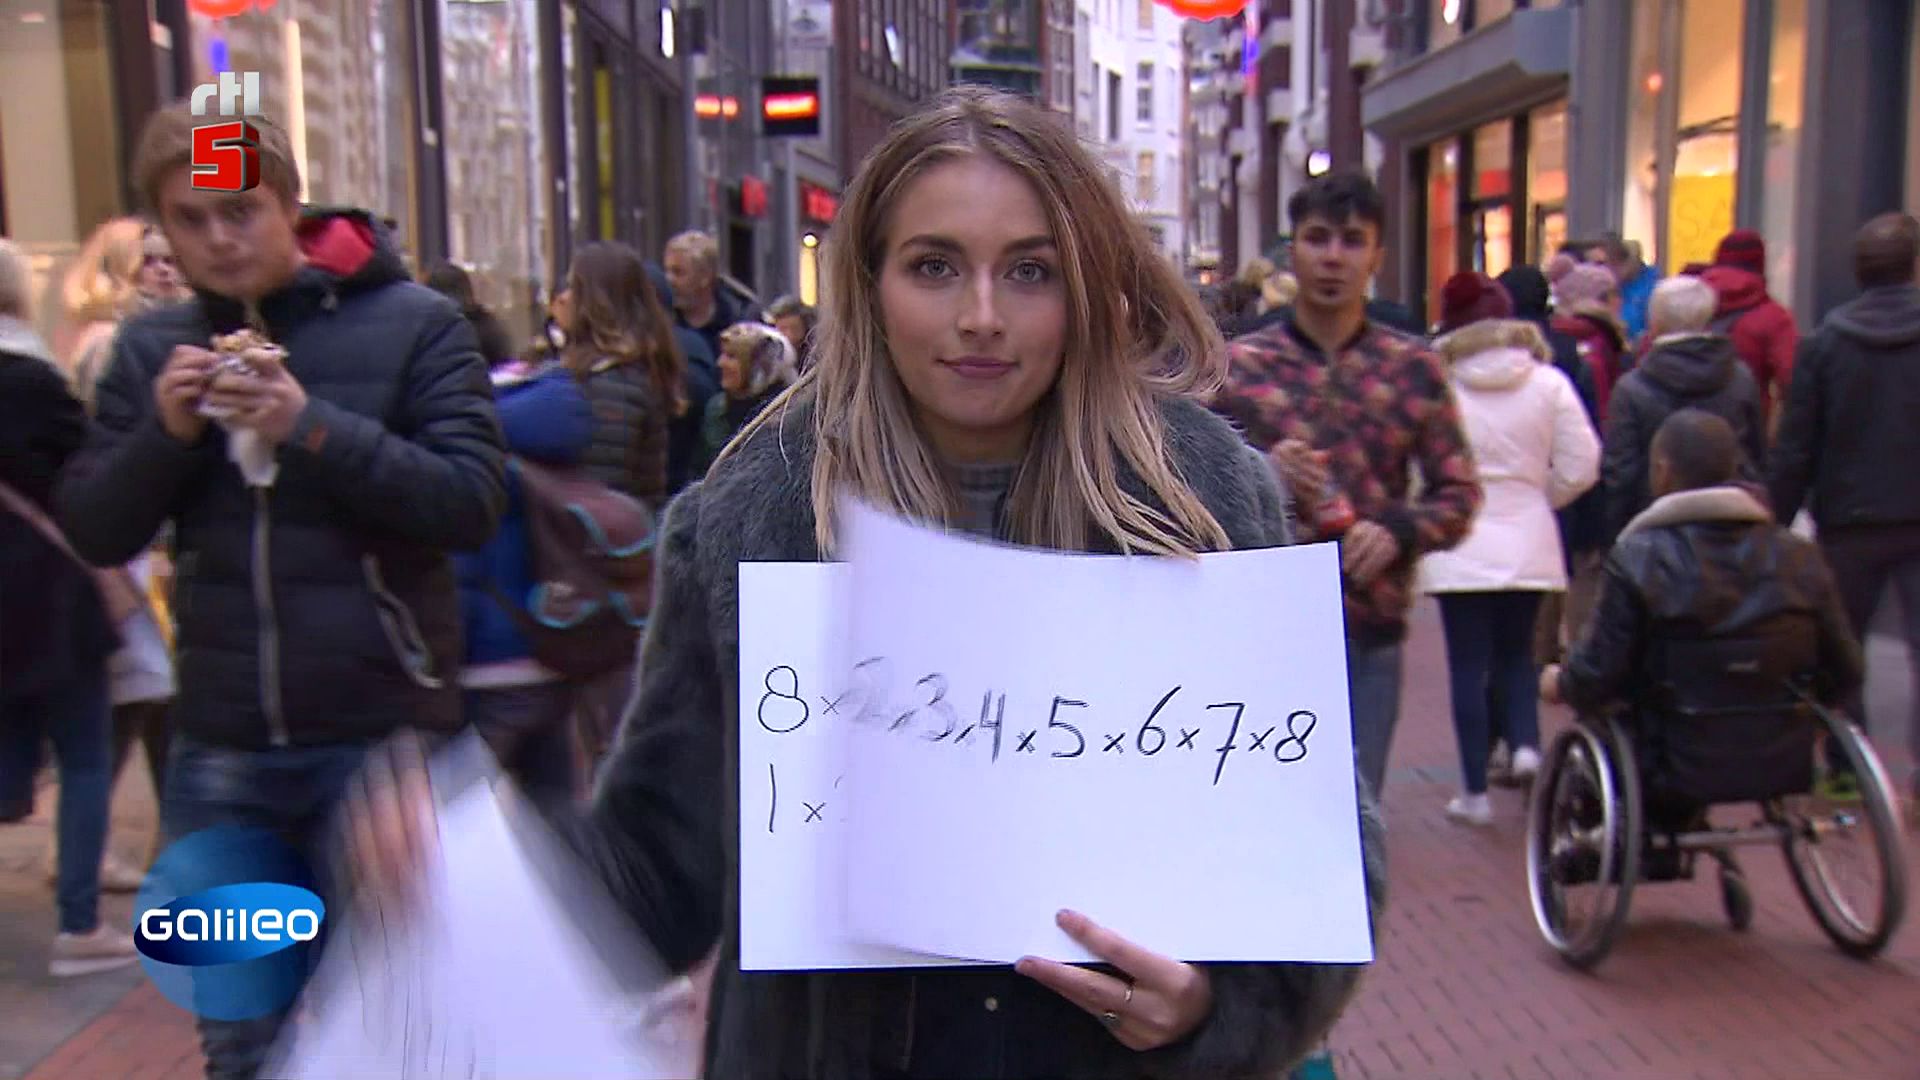 rtl
5
SA
8 ×
2×3×4×5×6×7×8
1 ×
GALILEO